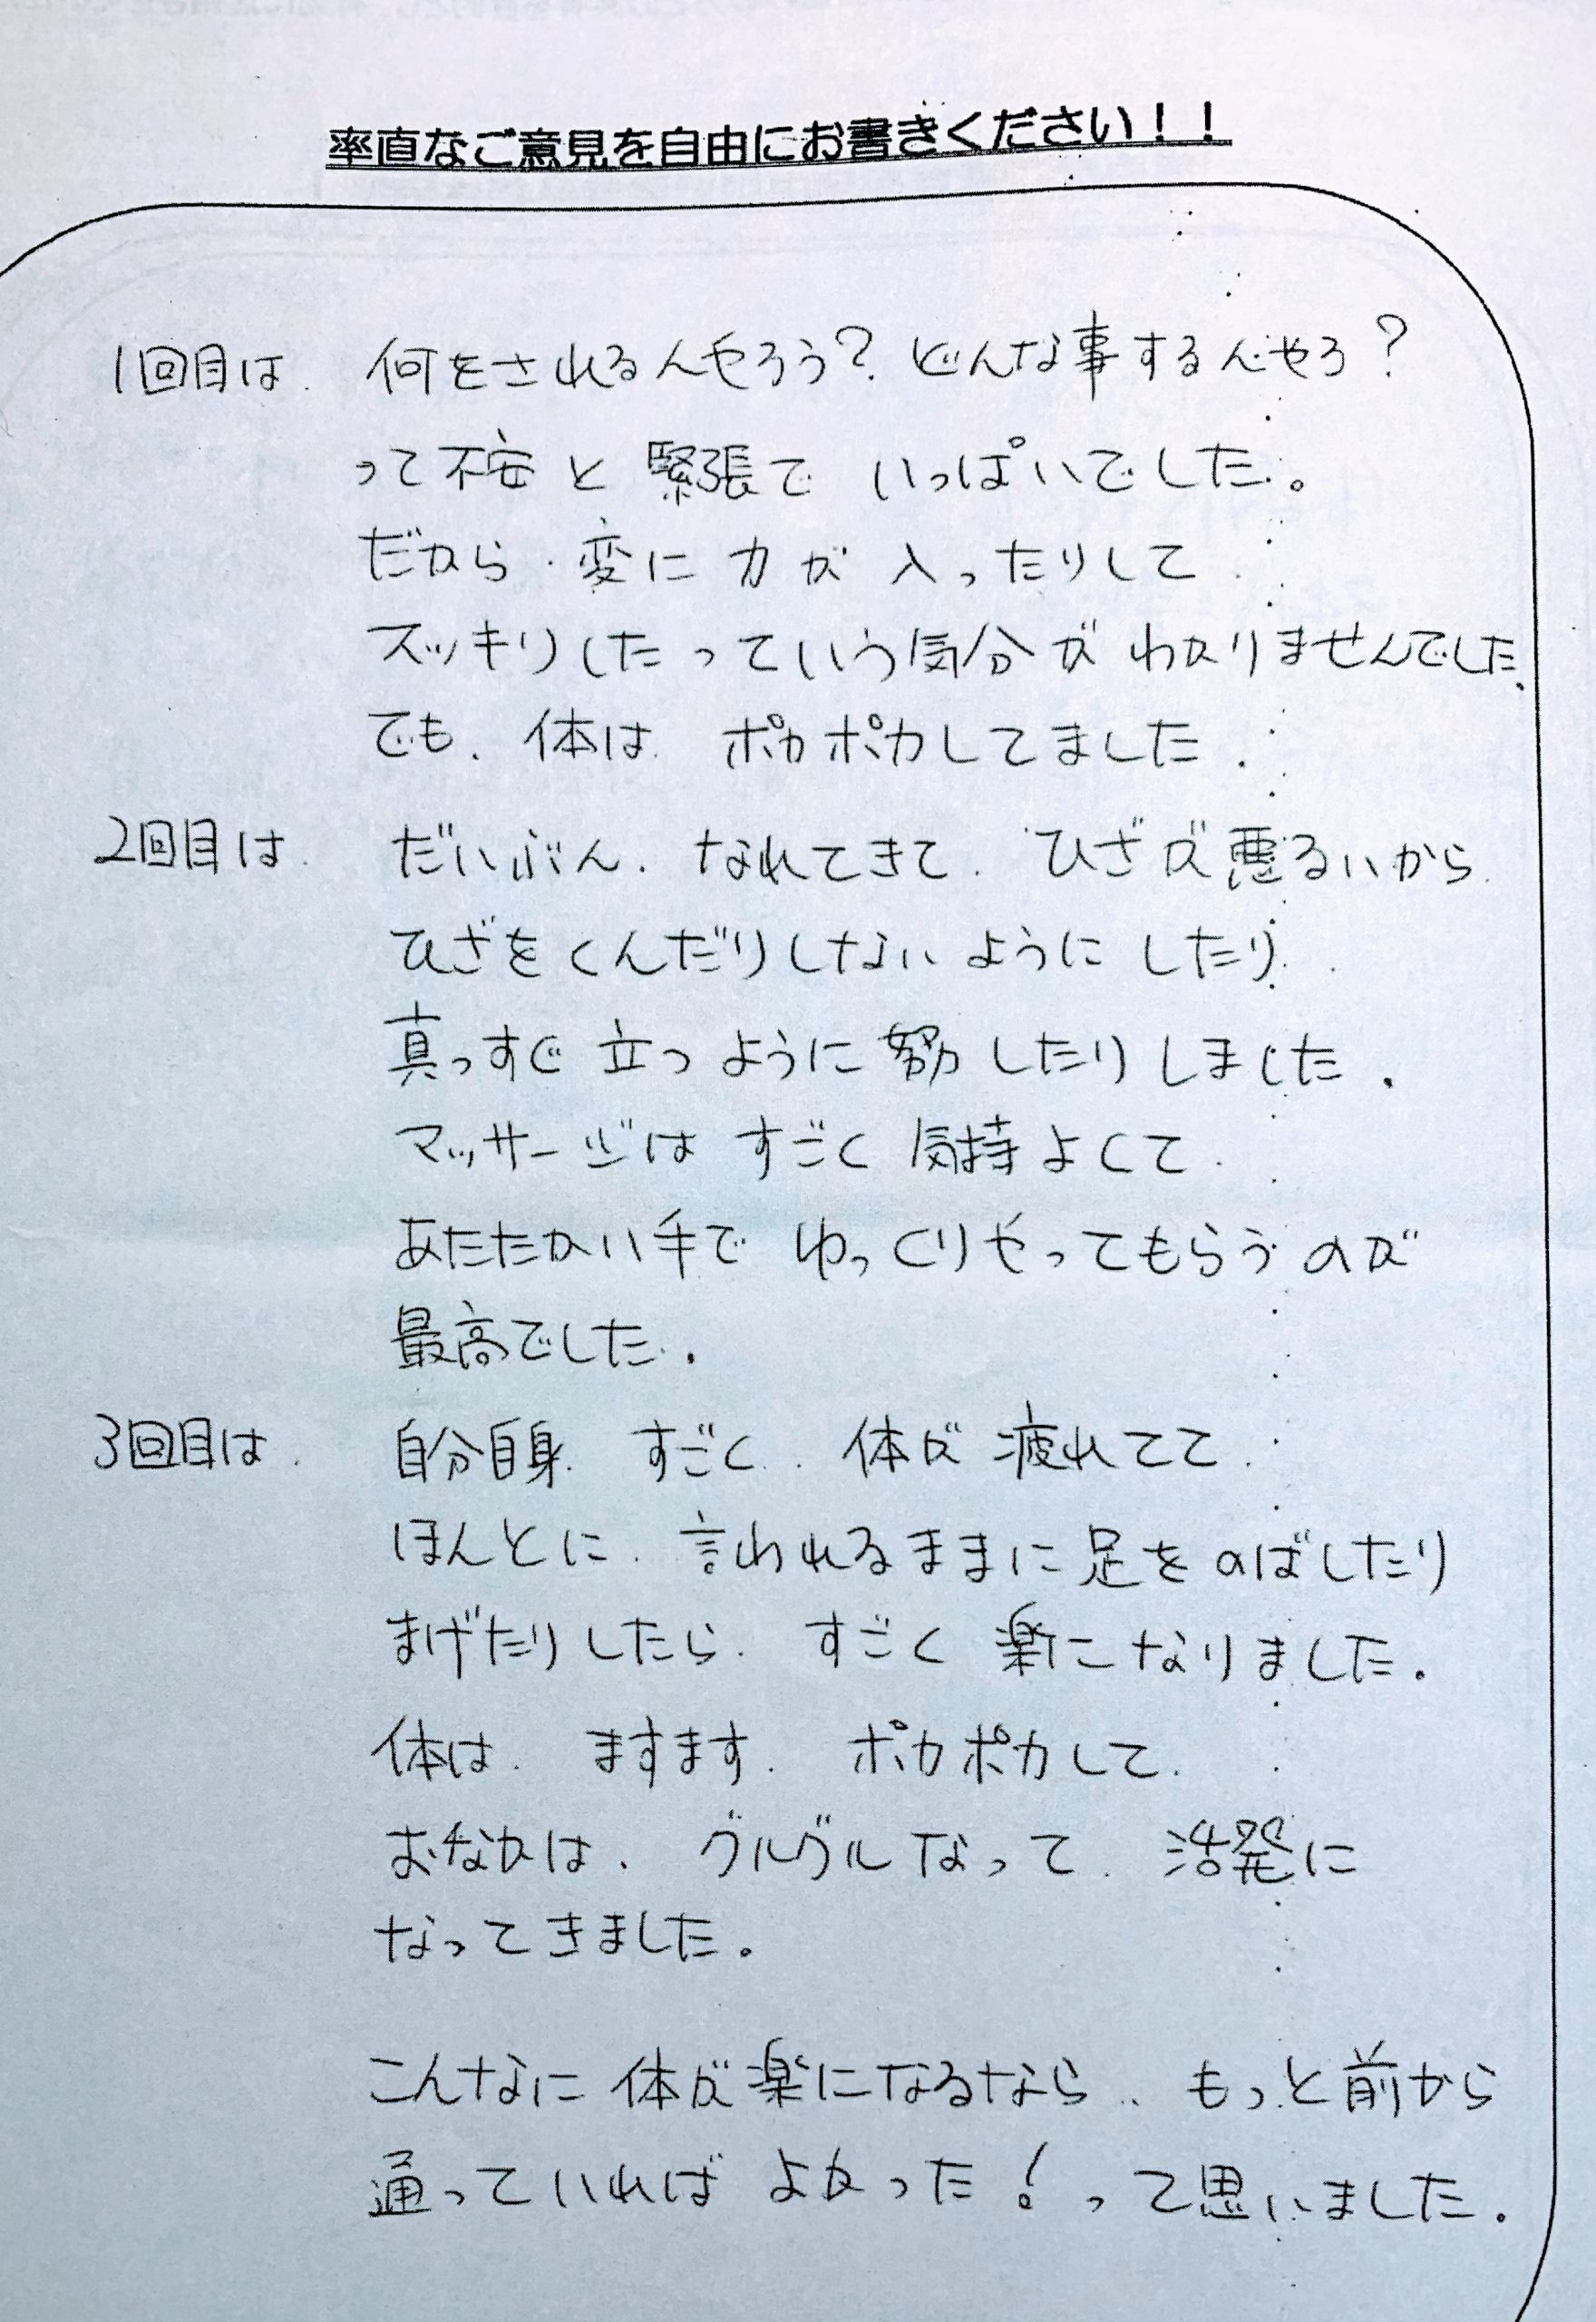 率直なご意見を自由にお書きください！！
1回目は 何をされるんやろう？どんな事するんやろ？
って不安と緊張でいっぱいでした。
だから変に力が入ったりして
スッキリしたっていう気分がわかりませんでした、
でも、体はポカポカしてました。
2回目は だいぶん、なれてきて ひざが悪るいから
ひざをくんだりしないようにしたり
真っすぐ立つように努力したりしました。
マッサージはすごく気持よくて
あたたかい手でゆっくりやってもらうのが
最高でした。
3回目は 自分自身 すごく 体が疲れてて
ほんとに 言われるままに足をのばしたり
まげたりしたら すごく楽になりました。
体は ますます ポカポカして
おなかは、グルグルなって 活発に
なってきました。
こんなに体が楽になるなら もっと前から
通っていればよかった！って思いました。